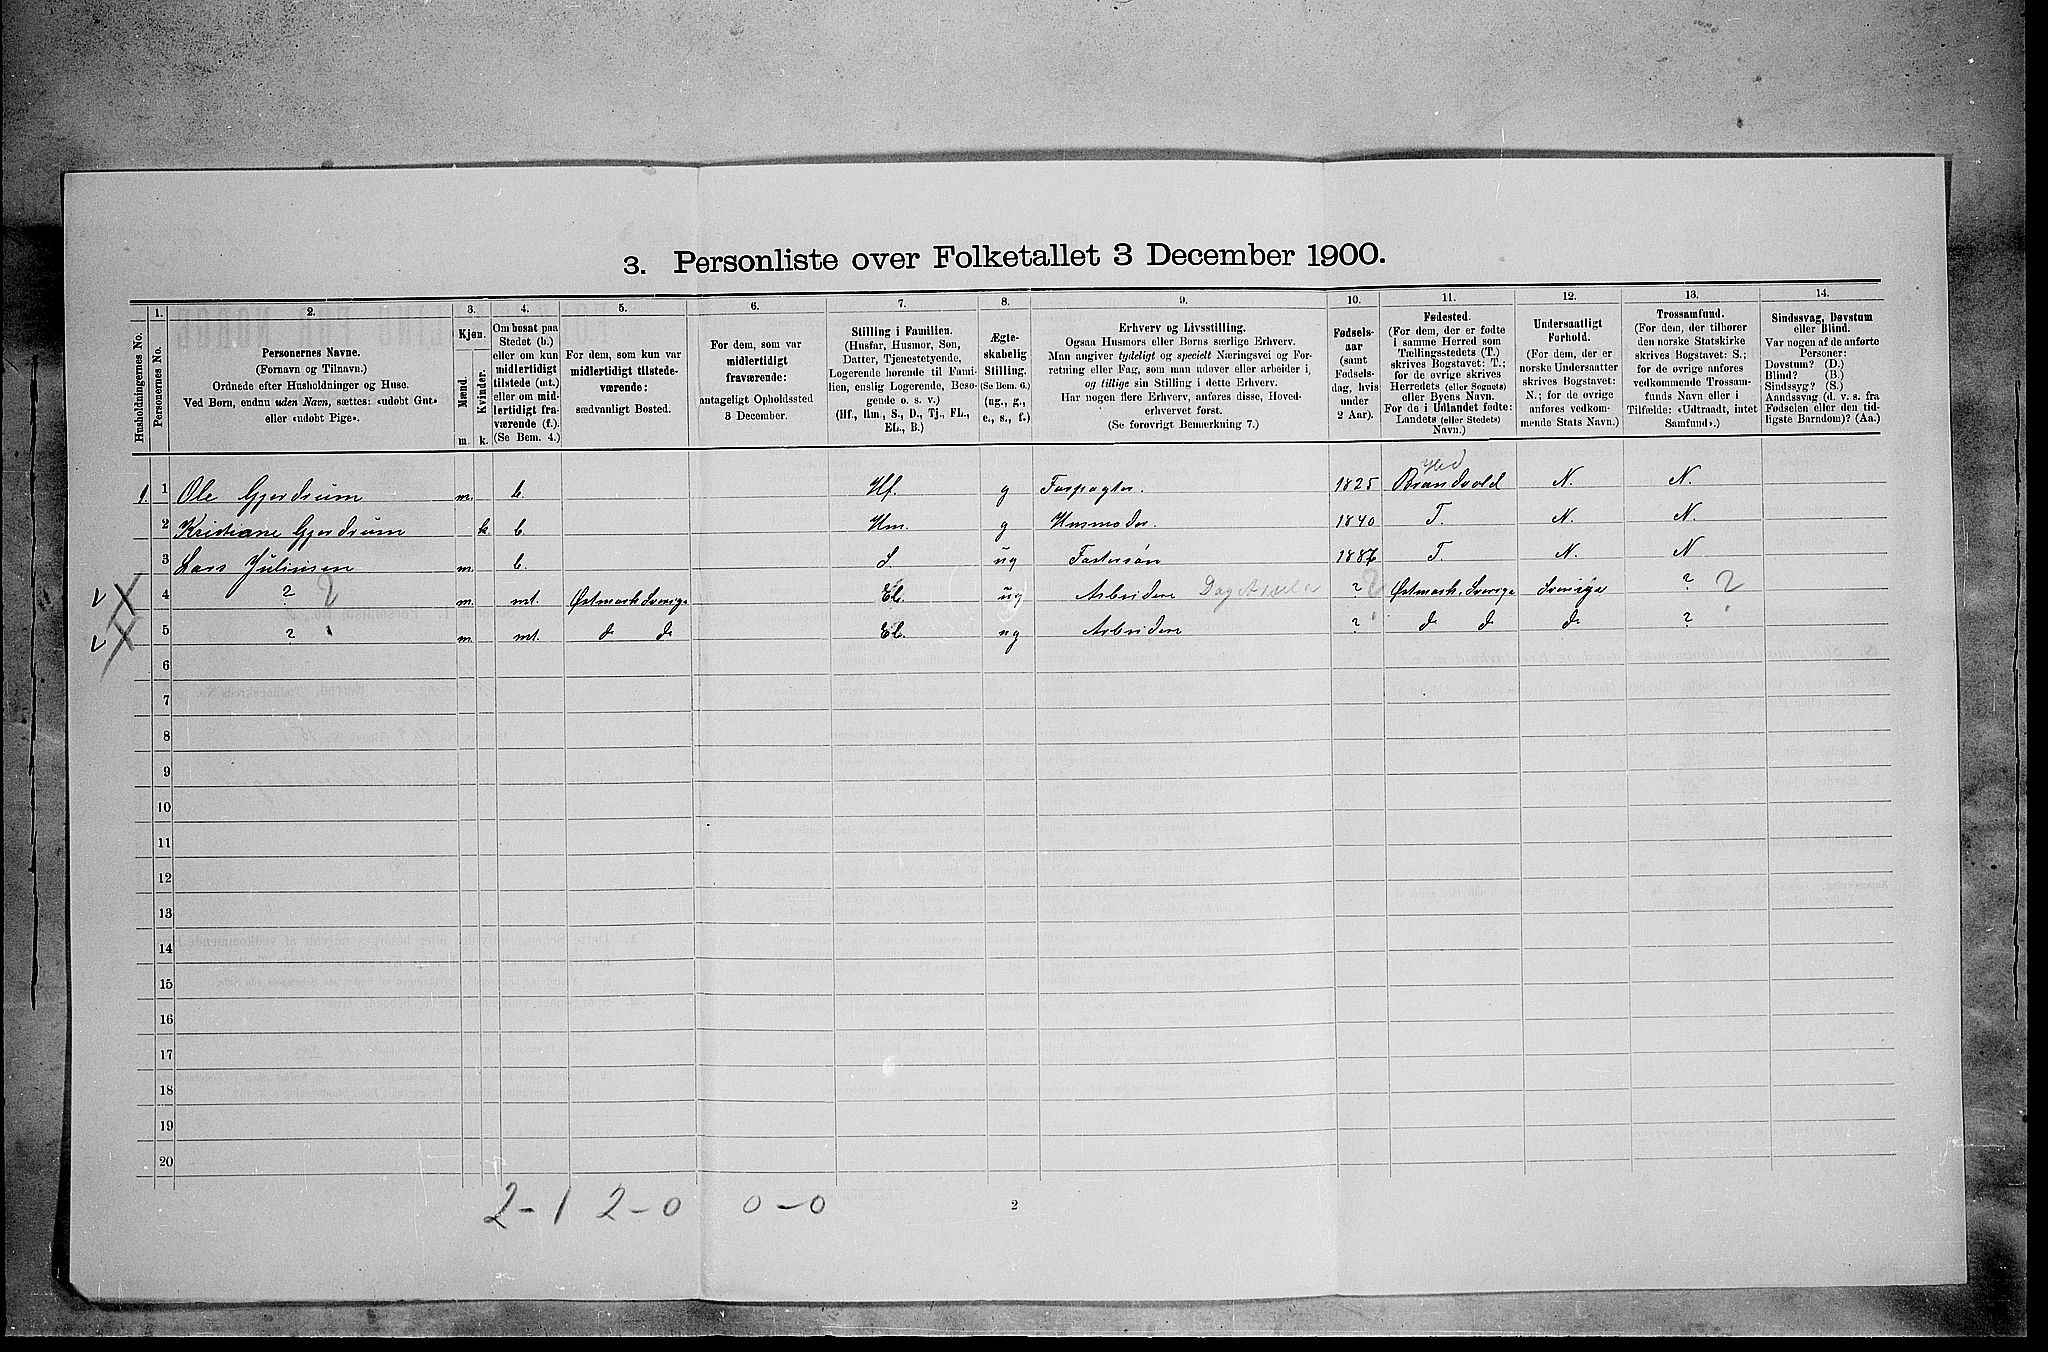 3. Personliste over Folketallet 3 December 1900.
1. 2. 3. 4. 5. 6. 7. 8. 9. 10. 11. 12. 13. 14.
Husholdningernes No.
Personernes No.
Personernes Navne.
(Fornavn og Tilnavn.)
Ordnede efter Husholdninger og Huse.
Ved Børn, endnu uden Navn, sættes: «udøbt Gut»
eller «udøbt Pige».
Kjøn.
Mænd.
Kvinder.
m. k.
Om bosat paa
Stedet (b.)
eller om kun
midlertidigt
tilstede (mt.)
eller om mid-
lertidigt fra-
værende (f.).
(Se Bem. 4.)
For dem, som kun var
midlertidigt tilstede-
værende:
sædvanligt Bosted.
For dem, som var
midlertidigt
fraværende:
antageligt Opholdssted
3 December.
Stilling i Familien.
(Husfar, Husmor, Søn,
Datter, Tjenestetyende,
Logerende hørende til Fami-
lien, enslig Logerende, Besø-
gende o. s. v.)
(Hf., Hm., S., D., Tj., FL.,
EL., B.)
Ægte-
skabelig
Stilling.
(Se Bem. 6.)
(ug., g.,
e., s., f.)
Erhverv og Livsstilling.
Ogsaa Husmors eller Børns særlige Erhverv.
Man angiver tydeligt og specielt Næringsvei og For-
retning eller Fag, som man udøver eller arbeider i,
og tillige sin Stilling i dette Erhverv.
Har nogen flere Erhverv, anføres disse, Hoved-
erhvervet først.
(Se forøvrigt Bemærkning 7.)
Fødsels-
aar
(samt
Fødsels-
dag, hvis
under
2 Aar).
Fødested.
(For dem, der er fødte
i samme Herred som
Tællingsstedets (T.)
skrives Bogstavet: T.;
for de øvrige skrives
Herredets (eller Sognets)
eller Byens Navn.
For de i Udlandet fødte:
Landets (eller Stedets)
Navn.)
Undersaatligt
Forhold.
(For dem, der er
norske Undersaatter
skrives Bogstavet:
N.; for de øvrige
anføres vedkom-
mende Stats Navn.)
Trossamfund.
(For dem, der tilhører
den norske Statskirke
skrives Bogstavet: S.;
for de øvrige anføres
vedkommende Trossam-
funds Navn eller i
Tilfælde: «Udtraadt, intet
Samfund».)
Sindssvag, Døvstum
eller Blind.
Var nogen af de anførte
Personer:
Døvstum? (D.)
Blind? (B.)
Sindssyg? (S.)
Aandssvag (d. v. s. fra
Fødselen eller den tid-
ligste Barndom)? (Aa.)
1. 1 Ole Gjerdrum m. b. Hf. g Forpagter. 1825 Brandvold N. N.
2 Kristiane Gjerdrum k b. Hm. g Husmoder. 1840 T. N. N.
3 Lars Juliusen m. b. S. ug Fostersøn T N. N
4 ? 2 m. mt. Østmark Sverige El. ug Arbeidere ? 2 Østmark, Sverige Sverige ? 2
5 ? m. mt. do do El. ug Arbeidere ? do do do ?
6
7
8
9
10
11
12
13
14
15
16
17
18
19
20
2-1 2-0 0-0 2